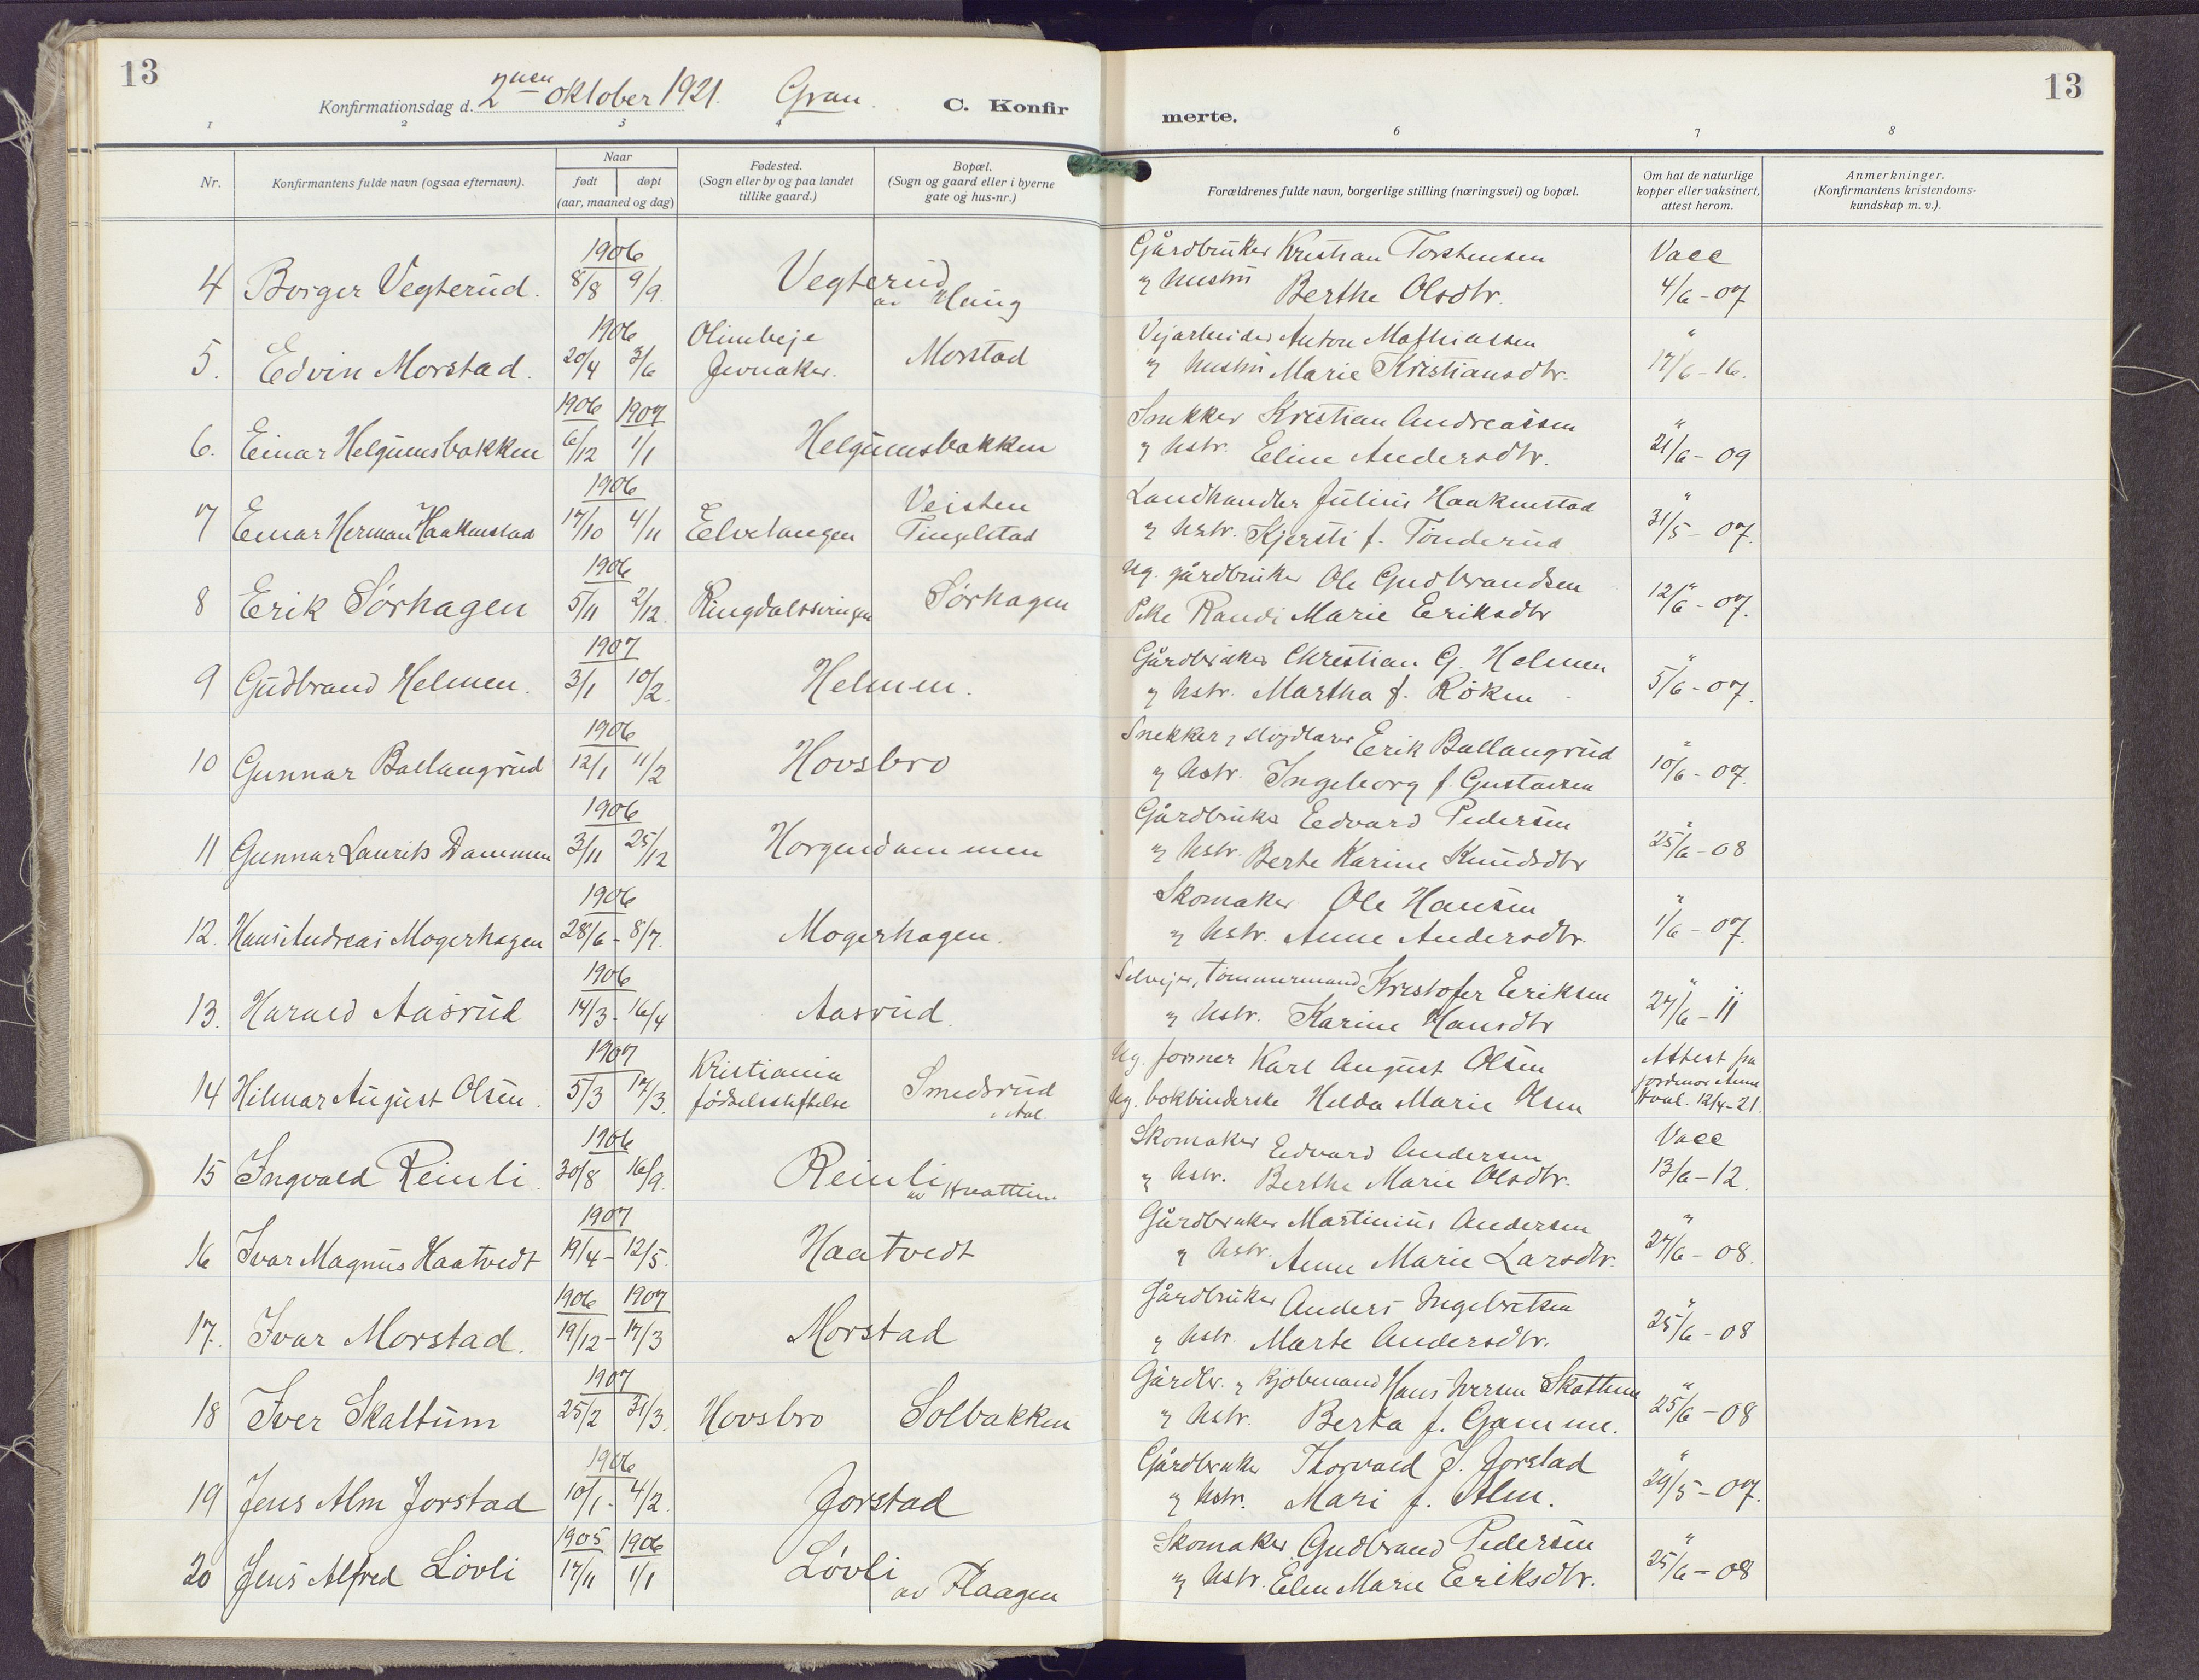 13
Konfirmationsdag d. 2nen oktober 1921. Gran. C. Konfir
merte.
13
1 2 3 4 6 7 8
Nr.
Konfirmantens fulde navn (ogsaa efternavn).
Naar
født døpt
(aar, maaned og dag)
Fødested.
(Sogn eller by og paa landet
tillike gaard.)
Bopæl.
(Sogn og gaard eller i byerne
gate og hus-nr.)
Forældrenes fulde navn, borgerlige stilling (næringsvei) og bopæl.
Om hat de naturlige
kopper eller vaksinert,
attest herom.
Anmerkninger.
(Konfirmantens kristendoms-
kundskap m. v.).
1906 Gårdbruker Kristian Torstensen Vacc
4 Borger Vegterud. 8/8 9/9. Vegterud av Haug " hustru Berthe Olsdtr. 4/6-07
1906 Olimbeje Vejarbeider Anton Mathiassen "
5. Edvin Morstad. 20/4 3/6 Jevnaker. Morstad " hustru Marie Kristiansdtr. 17/6-16.
1906 1907 Snekker Kristian Andreassen "
6. Einar Helgumsbakken 6/12 1/1 Helgumsbakken " hstr. Eline Andersdtr. 21/6-09
1906 Veisten Landhandler Julius Haakenstad "
7 Einar Herman Haakenstad 17/10 4/11 Elvetangen Tingelstad " hstr. Kjersti f. Tønderud 31/5-07.
1906 Ug. gårdbruker Ole Gudbrandsen "
8 Erik Sørhagen 5/11 2/12. Ringdalsseiringen Sørhagen Pike Randi Marie Eriksdtr 12/6-07.
1907 Gårdbruker Christian G. Helmen "
9 Gudbrand Helmen. 3/1 10/2. Helmen. " hstr. Martha f. Røken 5/6-07.
1906 Snekker, sløjdlærer Erik Ballangrud "
10 Gunnar Ballangrud 12/1 11/2 Hovsbro " hstr. Ingeborg f. Gustavsen 10/6-07.
1906 Gårdbruker Edvard Pedersen "
11 Gunnar Laurits Dammen 3/11 25/12 Horgendammen " hstr. Berte Karine Knudsdtr 25/6-08
1906 Skomaker Ole Hansen "
12. Hans Andreas Mogerhagen 28/6-8/7. Mogerhagen. " hstr. Anne Andersdtr. 1/6-07.
1906 Selvejer, tømmermand Kristofer Eriksen "
13. Harald Aasrud 14/3-16/4 Aasrud. " hstr. Karine Hansdtr 27/6-11
1907 Kristiania Ug. former Karl August Olsen Attest fra
14 Hilmar August Olsen. 5/3 17/3. fødselsstiftelse Smedsrud i Aal Ug. bokbinderske Hilda Marie Olsen jordmor Anne
Hval. 12/4-21.
1906 Skomaker Edvard Andersen Vacc
15 Ingvald Reinli. 30/8 16/9. Reinli av Hvattum " hstr. Berthe Marie Olsdtr. 13/6-12.
1907 Gårdbruker Martinius Andersen "
16 Ivar Magnus Haatvedt 19/4-12/5. Haatvedt " hstr. Anne Marie Larsdtr. 27/6-08.
1906 1907 Gårdbruker Anders Ingebretsen "
17. Ivar Morstad. 19/12-17/3 Morstad " hstr. Marte Andersdtr. 25/6-08
1907 Gårdbr. " Kjøbmand Hans Iversen Skattum "
18 Iver Skattum 25/2 31/3. Hovsbro Solbakken " hstr. Berta f. Gamme. 25/6-08
1906 Gårdbruker Thorvald J. Jorstad "
19 Jens Alm Jorstad 10/1-4/2. Jorstad " hstr. Mari f. Alm. 29/5-07.
1905 1906 Skomaker Gudbrand Pedersen "
20 Jens Alfred Løvli 17/11 1/1 Løvli av Flaagen " hstr. Elen Marie Eriksdtr. 25/6-08